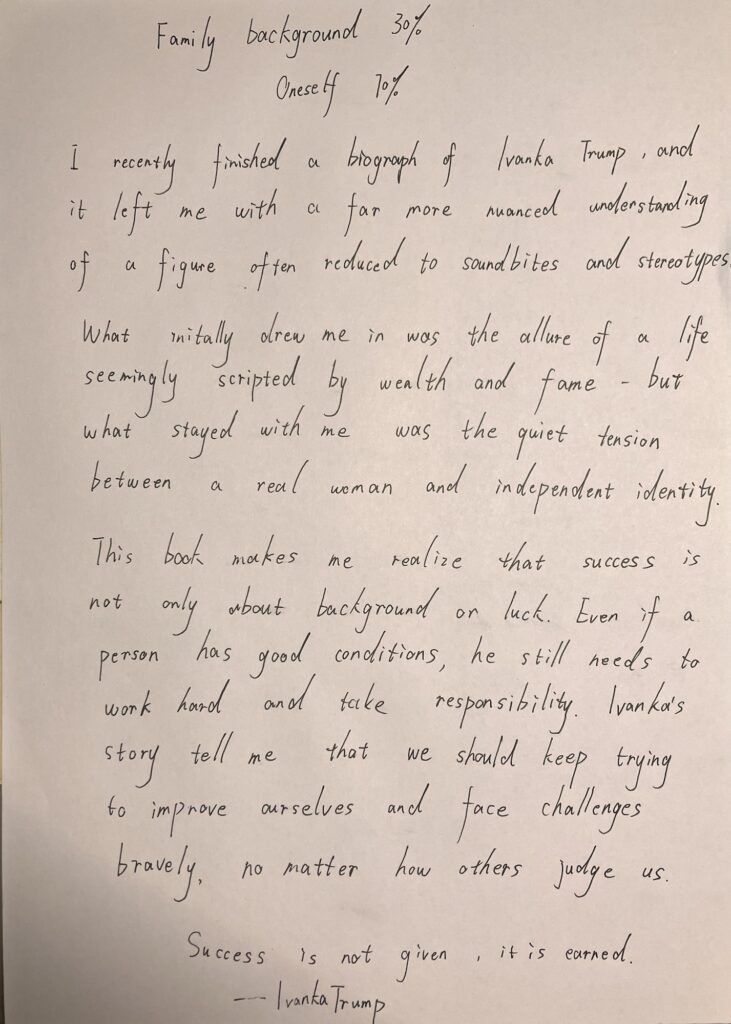 Family background 30%
Oneself 70%
I recently finished a biograph of Ivanka Trump, and
it left me with a far more nuanced understanding
of a figure often reduced to soundbites and stereotypes.
What initally drew me in was the allure of a life
seemingly scripted by wealth and fame - but
what stayed with me was the quiet tension
between a real woman and independent identity.
This book makes me realize that success is
not only about background or luck. Even if a
person has good conditions, he still needs to
work hard and take responsibility. Ivanka's
story tell me that we should keep trying
to improve ourselves and face challenges
bravely, no matter how others judge us.
Success is not given, it is earned.
--- Ivanka Trump